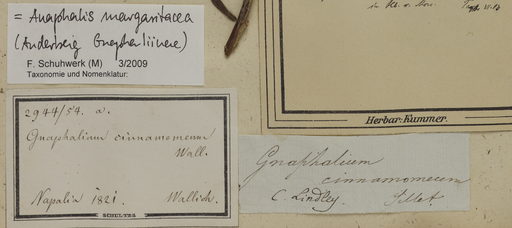 = Anaphalis margaritacea
(Anderberg Gnaphaliinere)
F. Schuhwerk (M) 3/2009
Taxonomie und Nomenklatur:
in
Herbar: Kummer.
2944/54. a.
Gnaphalium cinnamomeum
Wall.
Napalia 1821. Wallich.
SCHULTES
Gnaphalium
cinnamomeum
C. Lindley.